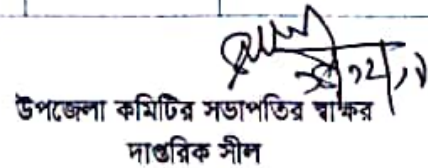 উপজেলা কমিটির সভাপতির স্বাক্ষর
দাপ্তরিক সীল